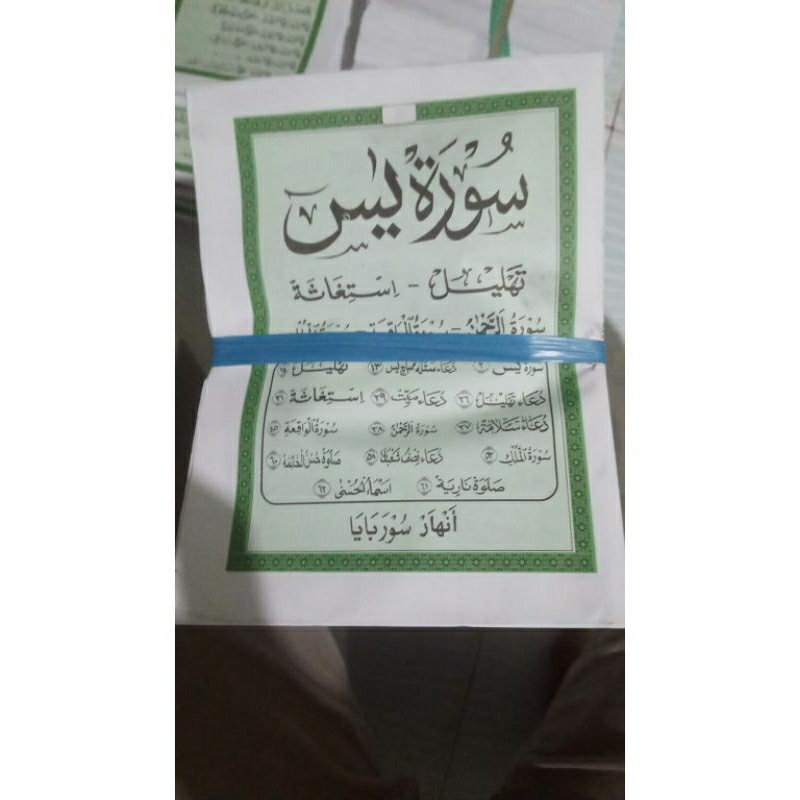 سُوْرَةُ يٰسٓ
تَهْلِيْل - اِسْتِغَاثَة
سُوْرَةُ الرَّحْمٰنُ - سُوْرَةُ الْوَاقِعَة -
سُوْرَةُ يٰسٓ ٢ دُعَاء ١٣ تَهْلِيْل ١٤
دُعَاء تَهْلِيْل ٢٦ دُعَاء مَيِّت ٢٩ اِسْتِغَاثَة ٣١
دُعَاء سَلَامَة ٣٧ سُوْرَةُ الرَّحْمٰنُ ٣٨ سُوْرَةُ الْوَاقِعَةِ ٤٥
سُوْرَةُ الْمُلْكِ ٥٣ دُعَاء نِصْف شَعْبَان ٥٨ ٦٠
صَلَوَة نَارِيَة ٦١ اَسْمَاءُ الْحُسْنٰى ٦٢
أَنْهَارْ سُوْرَبَايَا